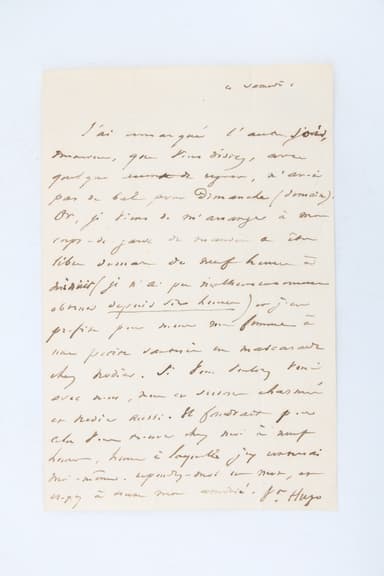 ce samedi
J'ai remarqué l'autre jour,
monsieur, que vous disiez, avec
quelque regret, n'avoir
pas de bal pour Dimanche (demain).
Or, je viens de m'arranger à mon
corps-de-garde de manière à être
libre demain de neuf heures à
minuit (je n'ai pu malheureusement
obtenir depuis six heures) et j'en
profite pour mener ma femme à
une petite soirée en mascarade
chez Nodier. Si vous voulez venir
avec nous, nous en serons charmés
et Nodier aussi. Il faudrait pour
cela vous trouver chez moi à neuf
heures, heure à laquelle j'y
moi-même. répondez-moi un mot, et
croyez à toute mon amitié. Vor Hugo